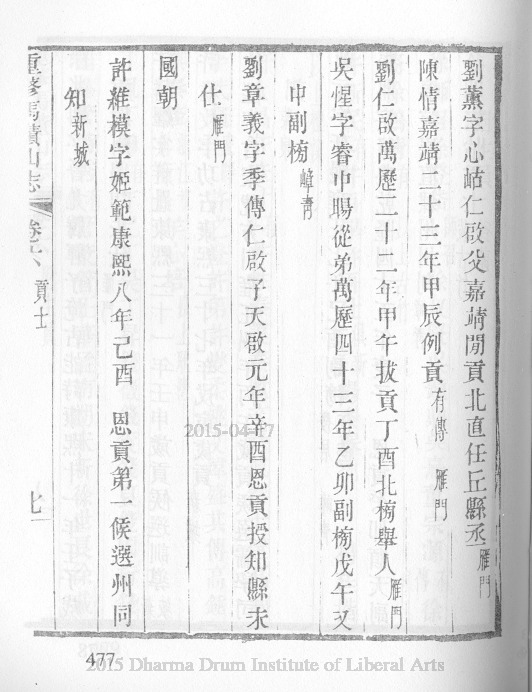 劉薰字心岵仁啟父嘉靖閒貢北直任丘縣丞雁門
陳情嘉靖二十三年甲辰例貢有傳 雁門
劉仁啟萬歷二十二年甲午拔貢丁酉北榜舉人雁門
吳惺字睿中暘從弟萬歷四十三年乙卯副榜戊午又
中副榜嶂青
劉章義字季傳仁啟子天啟元年辛酉恩貢授知縣未
仕雁門
國朝
許維模字姬範康熙八年己酉 恩貢第一候選州同
知新城
重修馬蹟山志 卷六 貢士
477
2015-04-17
2015 Dharma Drum Institute of Liberal Arts